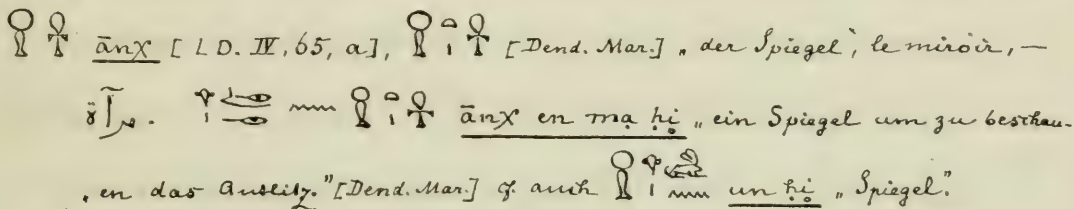 𓋹 ānχ [LD. IV, 65, a], 𓋹 [Dend. Mar.] „der Spiegel“, le miroir, —
مرآة. 𓈖 𓋹 ānχ en ma ḥi „ein Spiegel um zu beschau-
„en das Antlitz.“ [Dend. Mar.] cf. auch un ḥi „Spiegel“.